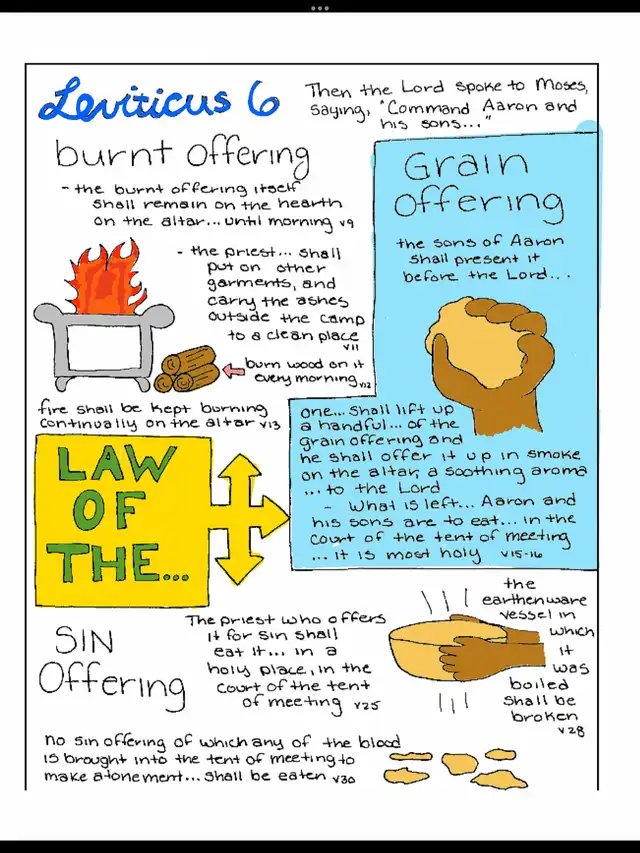 Leviticus 6
Then the Lord spoke to Moses,
saying, "Command Aaron and
his sons..."
burnt offering
- the burnt offering itself
shall remain on the hearth
on the altar... until morning v9
- the priest... shall
put on other
garments, and
carry the ashes
outside the camp
to a clean place
v11
burn wood on it
every morning v12
fire shall be kept burning
continually on the altar v13
Grain
Offering
the sons of Aaron
shall present it
before the Lord...
one... shall lift up
a handful... of the
grain offering and
he shall offer it up in smoke
on the altar, a soothing aroma
... to the Lord
- What is left... Aaron and
his sons are to eat... in the
court of the tent of meeting
... it is most holy v15-16
LAW
OF
THE...
SIN
Offering
The priest who offers
it for sin shall
eat it... in a
holy place, in the
court of the tent
of meeting v25
the
earthenware
vessel in
which
it
was
boiled
shall be
broken
v28
no sin offering of which any of the blood
is brought into the tent of meeting to
make atonement... shall be eaten v30